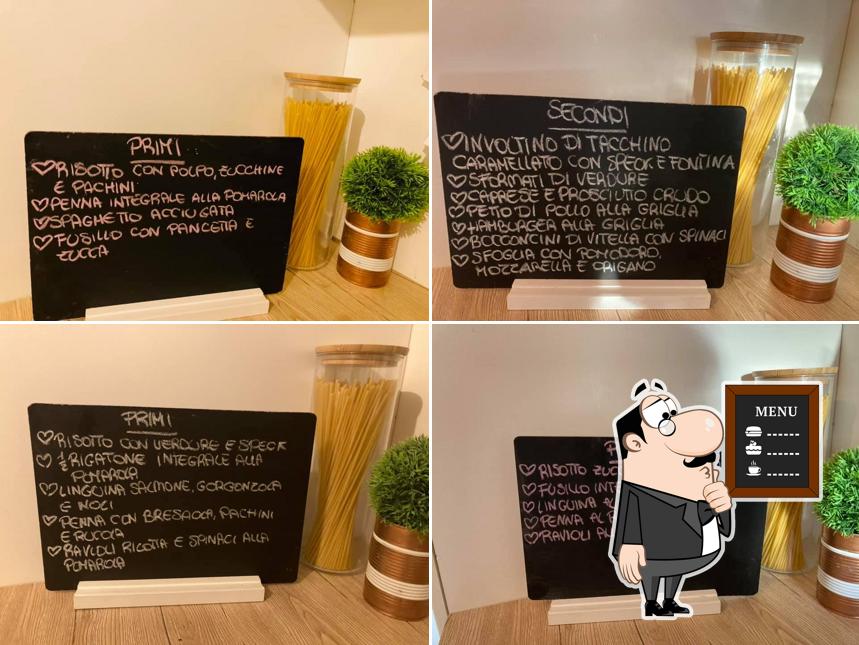 PRIMI
RISOTTO CON POLPO, ZUCCHINE
E PACHINI
PENNA INTEGRALE ALLA POMAROLA
SPAGHETTO ACCIUGATA
FUSILLO CON PANCETTA E
ZUCCA
SECONDI
INVOLTINO DI TACCHINO
CARAMELLATO CON SPECK E FONTINA
SFORMATI DI VERDURE
CAPRESE E PROSCIUTTO CRUDO
PETTO DI POLLO ALLA GRIGLIA
HAMBURGER ALLA GRIGLIA
BOCCONCINI DI VITELLA CON SPINACI
SFOGLIA CON POMODORO,
MOZZARELLA E ORIGANO
PRIMI
RISOTTO CON VERDURE E SPECK
RIGATONE INTEGRALE ALLA
POMAROLA
LINGUINA SALMONE, GORGONZOLA
E NOCI
PENNA CON BRESAOLA, PACHINI
E RUCOLA
RAVIOLI RICOTTA E SPINACI ALLA
POMAROLA
RISOTTO
FUSILLO
LINGUINA
PENNA
RAVIOLI
MENU